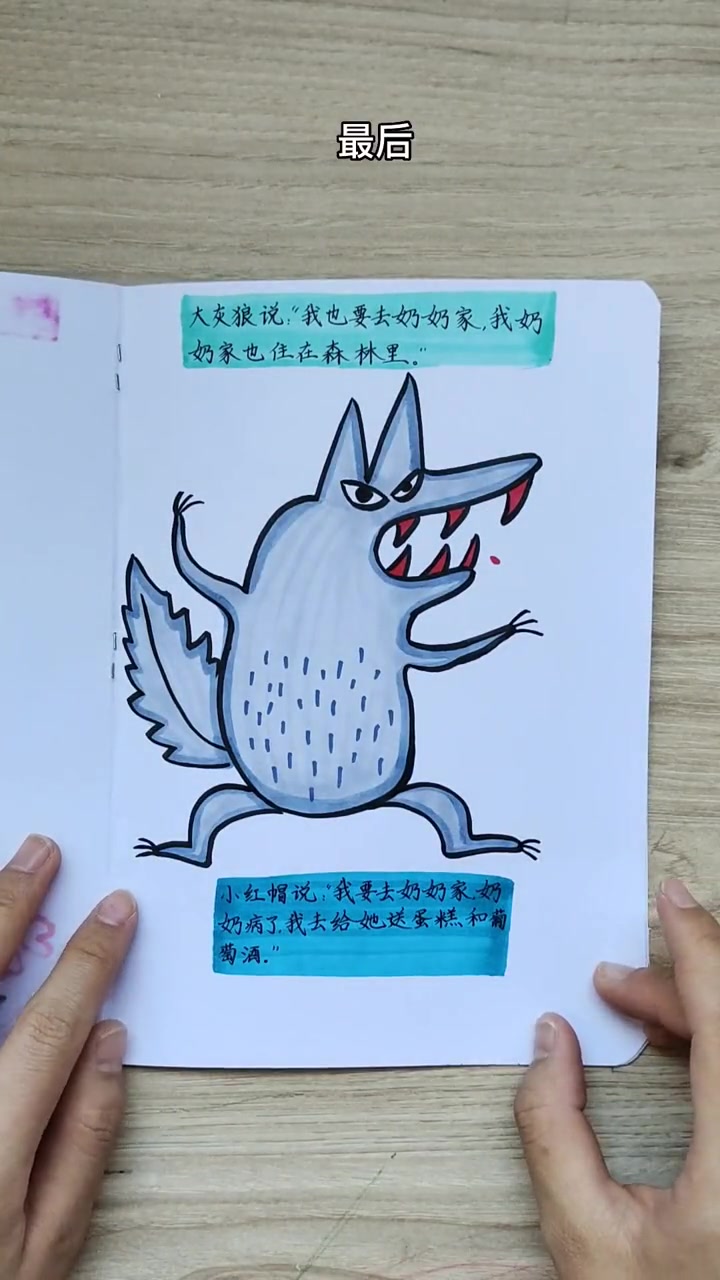 最后
大灰狼说:“我也要去奶奶家,我奶
奶家也住在森林里。”
小红帽说:“我要去奶奶家,奶
奶病了,我去给她送蛋糕和葡
萄酒。”